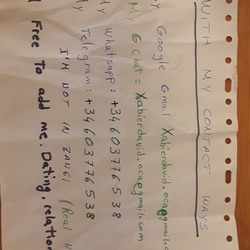 WITH MY CONTACT WAYS
Google Gmail Xabierdavid.ocaegmail.c
MY G Chat= Xabierdavid.oca@gmail.com
Whatsapp: +34603776538
Telegram: +34603776538
I'M NOT IN ZANGI (Real
Free to add me. Dating, relation